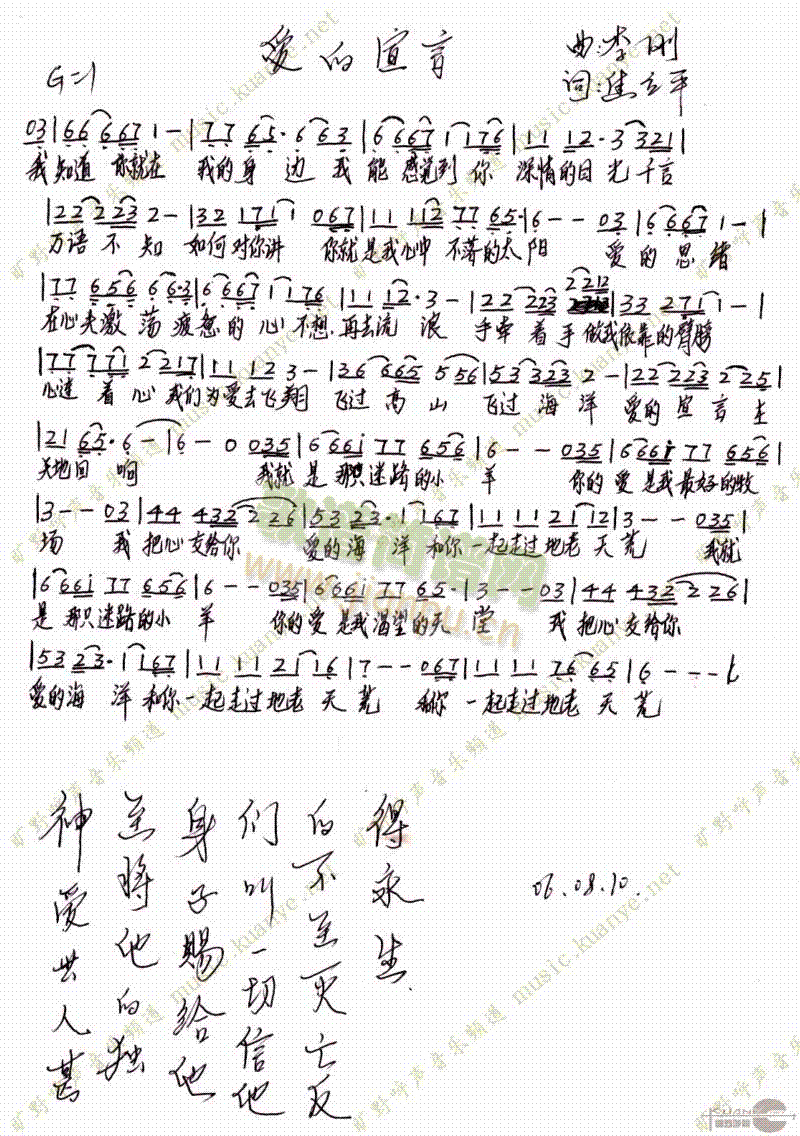 爱的宣言
曲:李刚
G=1
词:焦立平
03|66 6667 1-|77 65·6 663|6667 1 176|11 12·3 3321|
我知道 你就在 我的身 边 我 能 感觉到 你 深情的目 光 千言
|22 2223 2-|32 1711 067|11 1112 77 65·|6-- 03|6 6667 1-|
万语 不 知 如何对你讲 你就是我心中 不落的太 阳 爱 的 思 绪
|77 656 66·3|6667 1 176|11 12·3-|22 2223 2212|33 2711-|
在心头激 荡 疲惫 的 心 不想 再去流 浪 手牵 着 手 做我依靠的臂膀
|77 771 2 2217|11 12 3-|36 6665 556|53 3323 2-|22 2223 225|
心连 着 心 我们为爱去飞翔 飞过 高 山 飞过 海 洋 爱的 宣 言 在
|21 65·6-|6-0 035|6661 77 656|6-- 035|6661 77 656|
天地回 响 我就 是 那只迷路的小 羊 你的 爱 是我最好的牧
|3-- 03|44 4322 226|53 23·1167|11 11 21 12|3-- 035|
场 我 把心 交给你 爱的海 洋 和你一起走过地老 天荒 我就
|6661 77 656|6-- 035|6661 77 65·|3-- 03|44 432 226|
是 那只迷路的小 羊 你的爱 是我渴望的天 堂 我 把心 交给你
|53 23·1167|11 11 21 116|7-- 067|11 11 76 65|6---|
爱的海 洋 和你一起走过 地老 天荒 和你 一起走过地老 天荒
神爱世人甚
至将他的独
身子赐给他
们叫一切信他
的不至灭亡反
得永生.
06.08.10.
歌谱简谱网
www.jianpu.cn
旷野呼声音乐频道 music.kuanye.net
KUANYE